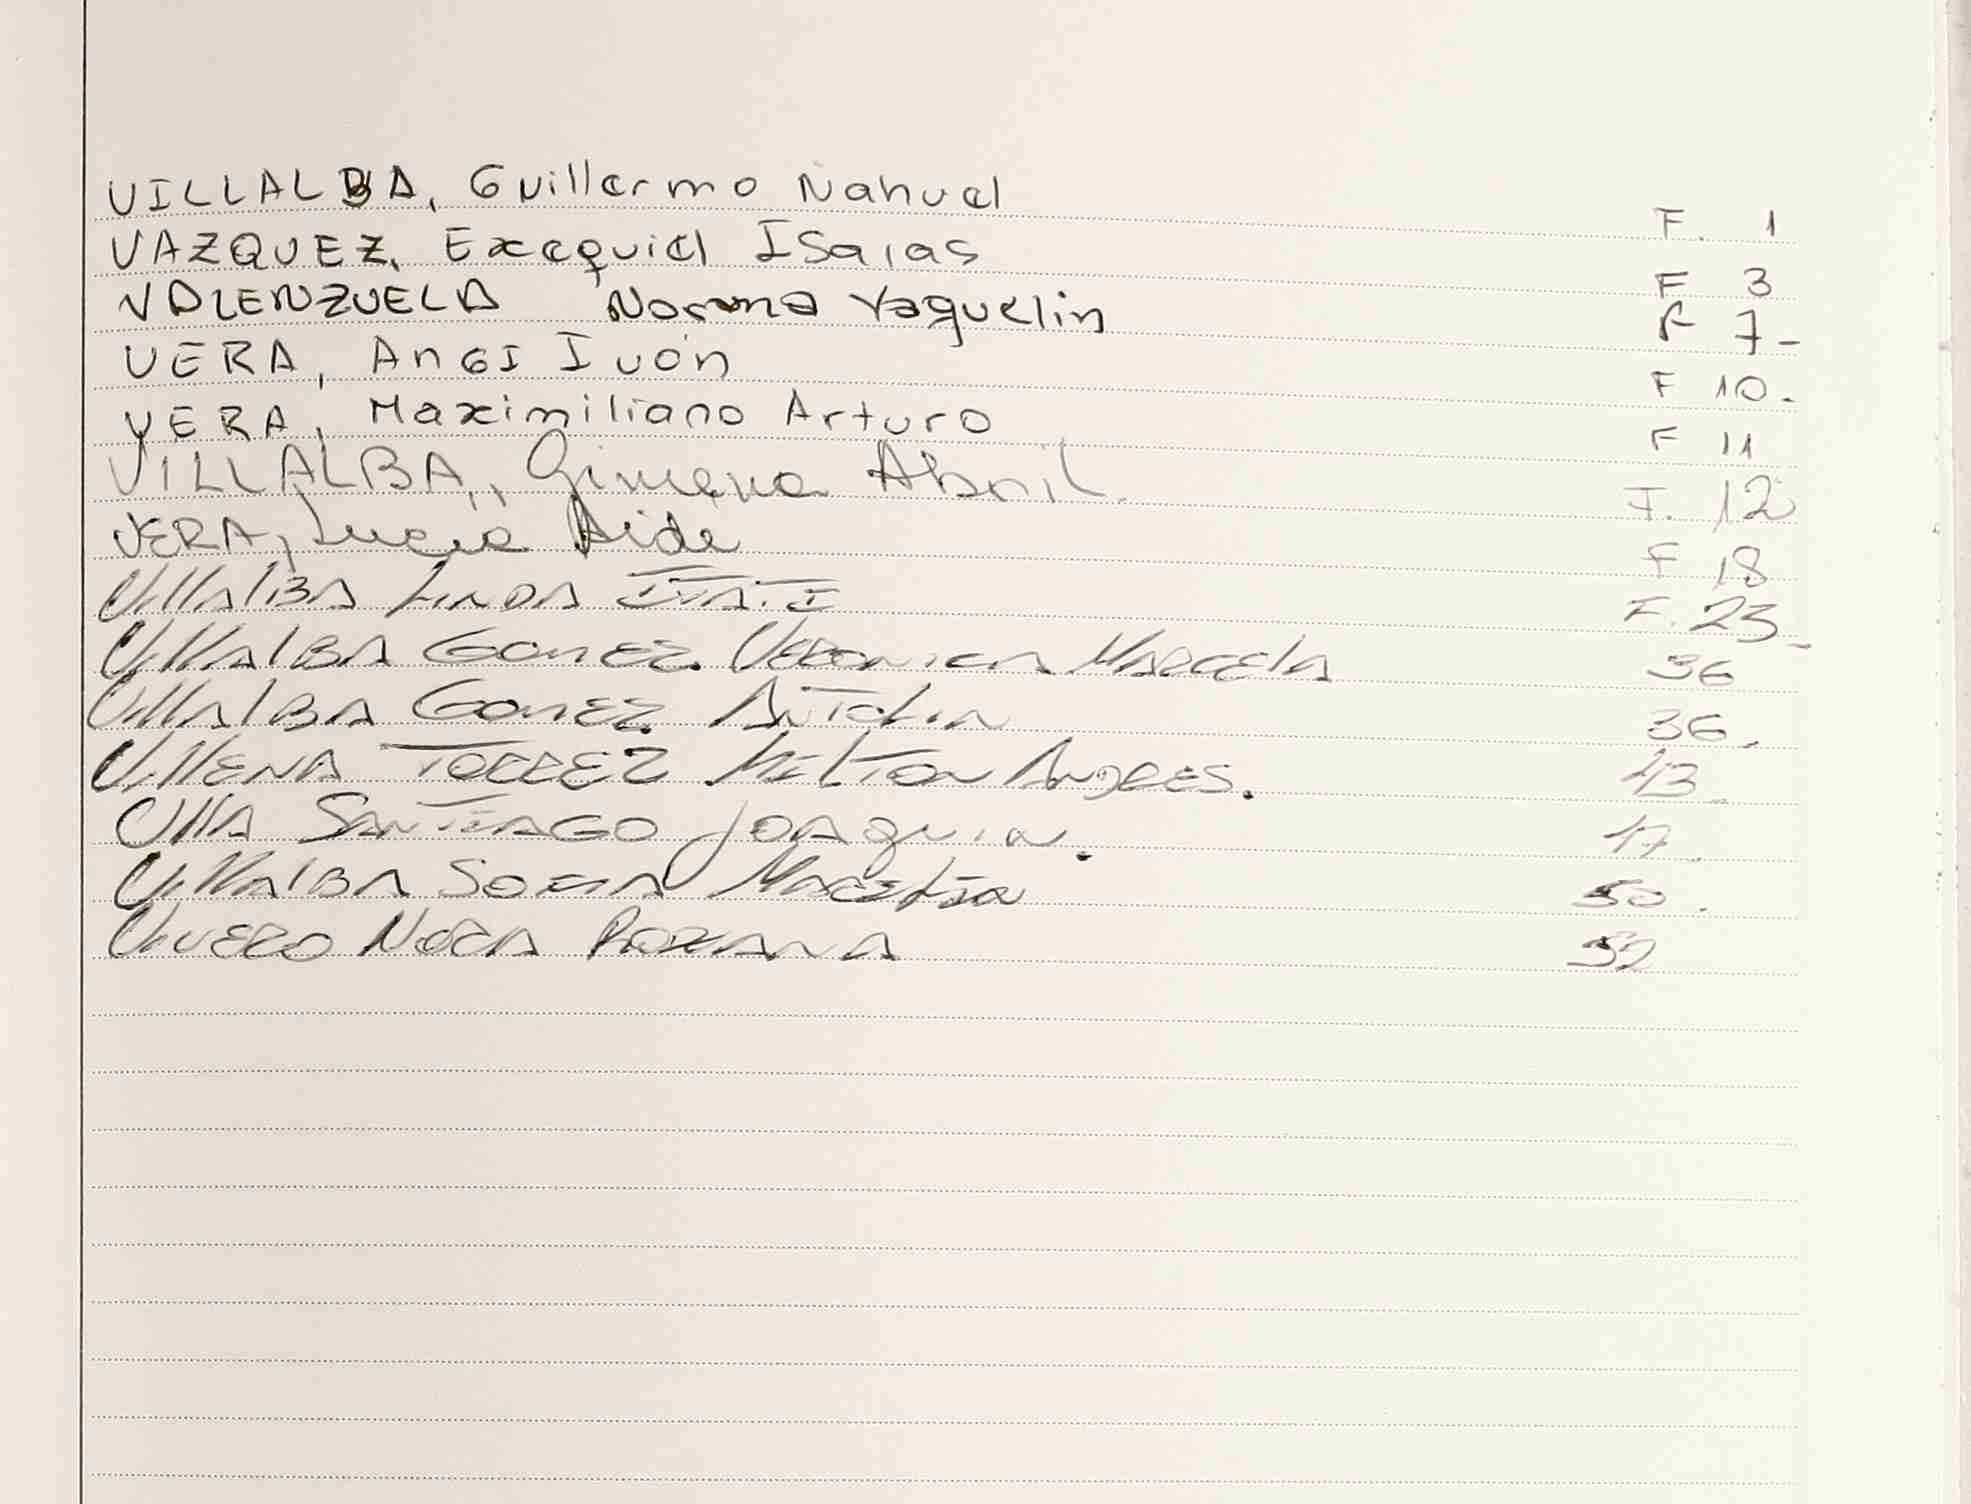 VILLALBA, Guillermo Nahuel F. 1
VAZQUEZ, Exequiel Isaias F 3
VALENZUELA Norma Yaquelin F 7-
VERA, Angi Ivón F 10.
VERA, Maximiliano Arturo F 11
VILLALBA, Gimena Abril. F. 12
VERA, Lucia Aide F 18
VillAlBA LINDA ITATI F. 23-
VillAlBA GOMEZ VERONICA MARCELA 36
VillAlBA GOMEZ ANTOLIN 36.
VillENA TORREZ MILTON ANDRES. 43.
UllA SANTIAGO JOAQUIN. 47.
VillAlBA SOFIA 50.
VIVERO NORA ROXANA